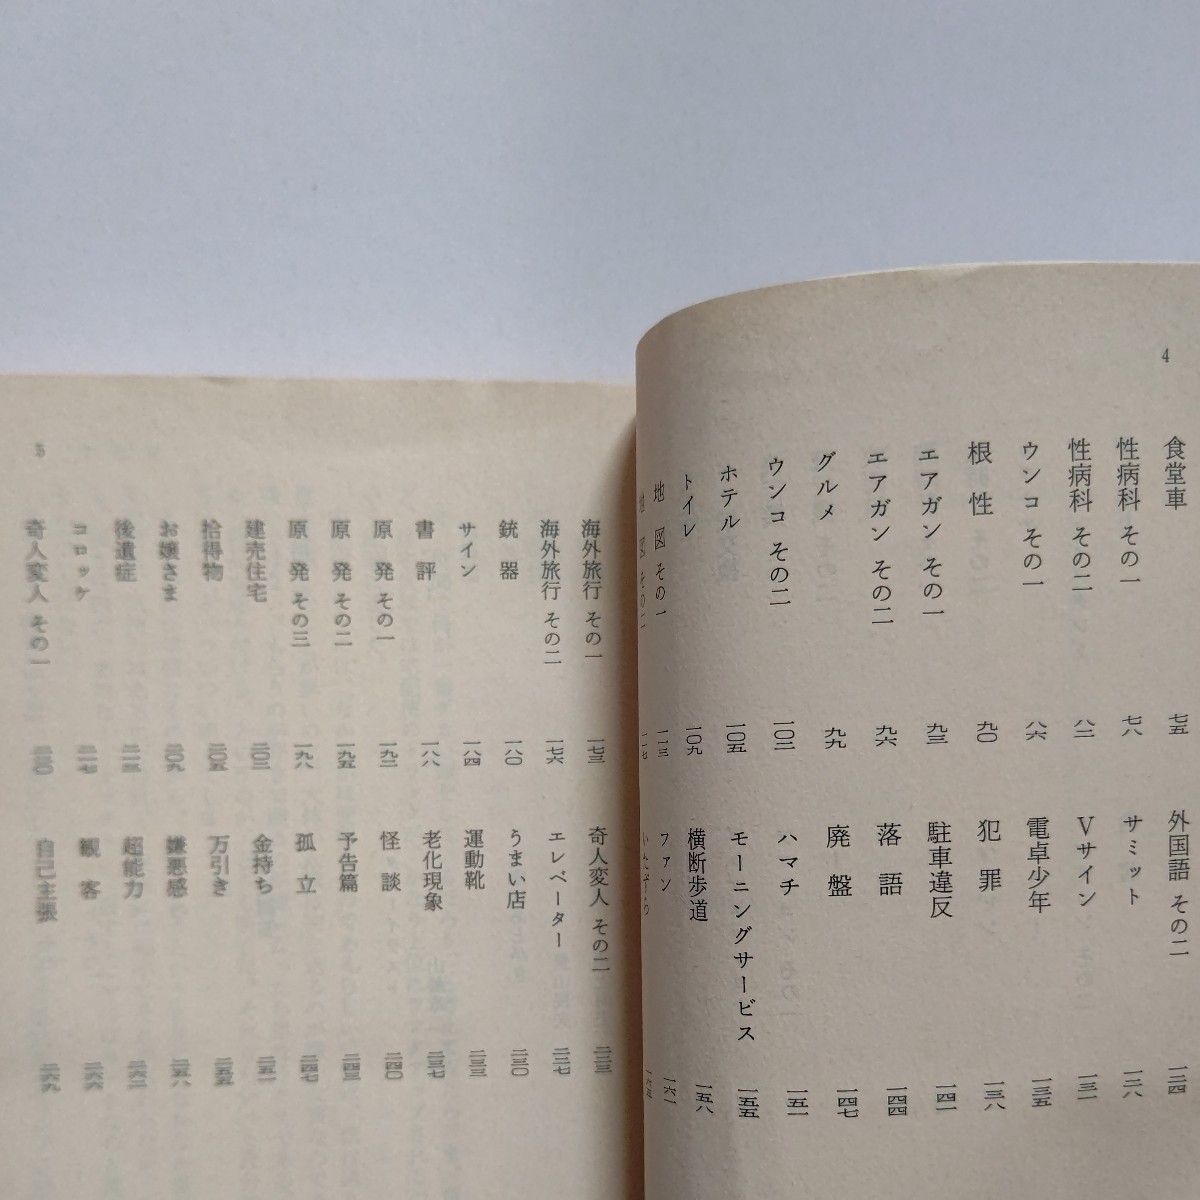 4
食堂車 七五
性病科 その一 七八
性病科 その二 八二
ウンコ その一 八六
根性 九〇
エアガン その一 九三
エアガン その二 九六
グルメ 九九
ウンコ その二 一〇二
ホテル 一〇五
トイレ 一〇九
地図 その一 一一三
地図 その二 一一七
外国語 その二 一二四
サミット 一二八
Vサイン 一三一
電卓少年 一三五
犯罪 一三八
駐車違反 一四一
落語 一四四
廃盤 一四七
ハマチ 一五一
モーニングサービス 一五五
横断歩道 一五八
ファン 一六一
5
海外旅行 その一 一七三
海外旅行 その二 一七六
銃器 一八〇
サイン 一八四
書評 一八八
原発 その一 一九二
原発 その二 一九五
原発 その三 一九八
建売住宅 二〇二
拾得物 二〇五
お嬢さま 二〇九
後遺症 二一三
コロッケ 二一七
奇人変人 その一 二二〇
奇人変人 その二 二二三
エレベーター 二二七
うまい店 二三〇
運動靴 二三三
老化現象 二三七
怪談 二四〇
予告篇 二四三
孤立 二四七
金持ち 二五一
万引き 二五五
嫌悪感 二五八
超能力 二六二
観客 二六六
自己主張 二六九